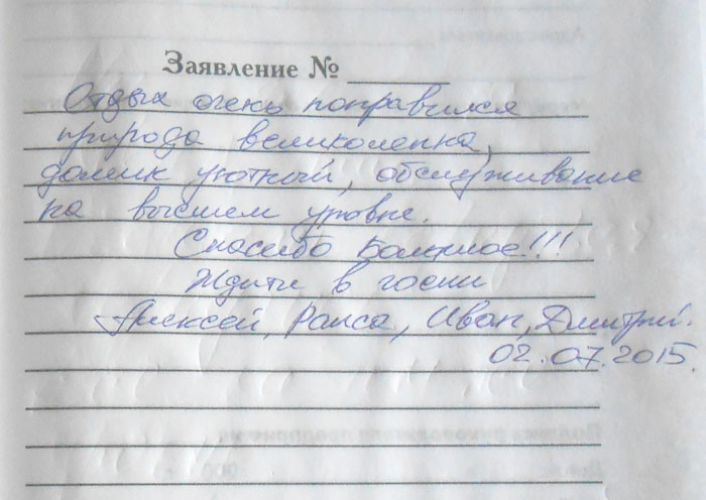 Заявление № ________
Отдых очень понравился
природа великолепна,
домик уютный, обслуживание
на высшем уровне.
Спасибо большое!!!
Ждите в гости
Алексей, Раиса, Иван, Дмитрий.
02.07.2015